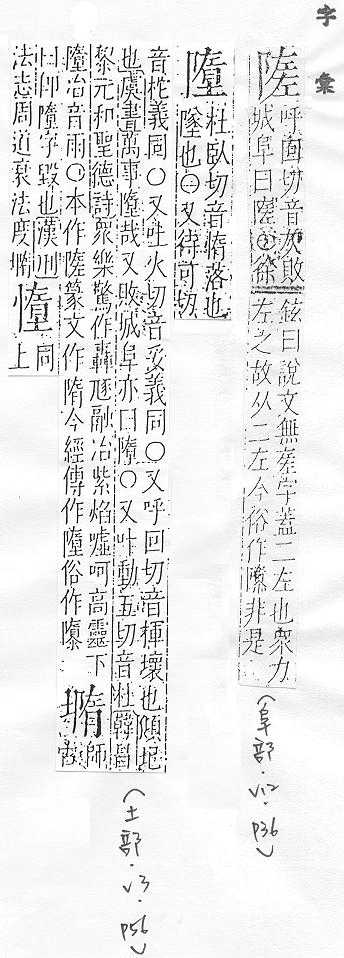 字彙
隓
呼回切音灰敗
城阜曰隓○徐
鉉曰說文無𡐦字蓋二左也眾力
左之故从二左今俗作隳非是
(阜部.V12.P36)
墮
杜臥切音惰落也
墜也○又待可切
音柁義同○又吐火切音妥義同○又呼回切音揮壞也傾圮
也虞書萬事墮哉又敗城阜亦曰墮○又叶動五切音杜韓昌
黎元和聖德詩眾樂驚作轟豗融冶紫焰噓呵高靈下
墮冶音雨○本作隓篆文作隋今經傳作墮俗作隳
師
古
曰卽墮字毀也漢刑
法志周道衰法度
同
上
(土部.V3.P56)